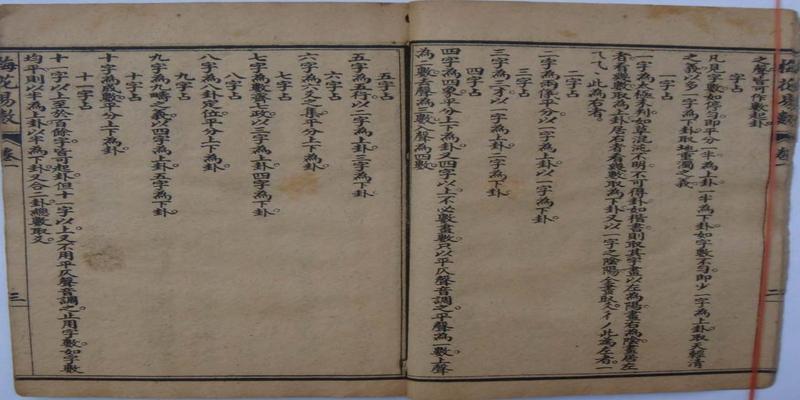 之聲皆可作數起卦
字占
凡見字數如停勻即平分一半為上卦一半為下卦如字數不勻即少一字為上卦取天輕清
之義以多一字為下卦取地重濁之義
一字占
一字為太極未判如草混沌不明不可得卦如楷書則取其字畫以左為陽畫右為陰畫居左
者看幾數取為上卦居右者看幾數取為下卦又以一字之陰陽全畫取爻彳丿此為左者一
乁乀丶此為右者
二字占
二字為兩儀平分以一字為上卦以一字為下卦
三字占
三字為三才以一字為上卦二字為下卦
四字占
四字為四象平分上下為卦又四字以上不必數畫數只以平仄聲音調之平聲為一數上聲
為二數去聲為三數入聲為四數
五字占
五字為五行以二字為上卦三字為下卦
六字占
六字為六爻之集平分上下為卦
七字占
七字為數齊七政以三字為上卦四字為下卦
八字占
八字為八卦定位平分上下為卦
九字占
九字為九疇之義以四字為上卦五字為下卦
十字占
十字為成數平分上下為卦
十一字占
十一字以上至於百餘字皆可起卦但十一字以上又不用平仄聲音調之止用字數如字數
均平則以半為上卦以半為下卦又合二卦總數取爻
梅花易數
卷一
三
梅花易數
卷一
二